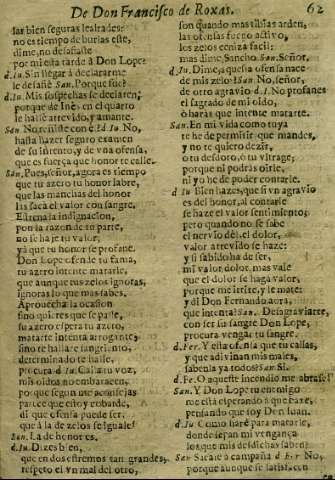 De Don Francisco de Roxas. 62
las bien seguras lealtades:
no es tiempo de burlas este,
dime, no desafiaste
por mi esta tarde à Don Lope?
d. Iu. Sin llegar à declararme
le desafiè San. Porque fue?
d. Iu. Mis sospechas se declaren;
porque de Inès en el quarto
le hallè atrevido, y amante.
San. No reñiste con èl? d. Iu. No,
hasta hazer seguro examen
de su intento, y de una ofensa,
que es fuerça que honor te calle.
San. Pues, señor, agora es tiempo
que tu azero tu honor labre,
que las manchas del honor
las saca el valor con sangre.
la indignacion,
pon la razon de tu parte,
no se haze tu valor,
yà que tu honor se profane.
Don Lope ofende tu fama,
tu azero intente matarle,
que aunque tus zelos ignoras,
ignoras lo que mas sabes.
Aprovecha la ocasion
sino quieres que se passe,
su azero espera tu azero,
matarte intenta arrogante,
sino te hallare sangriento,
determinado te halle,
procura d. Iu. Calla tu voz,
mis oidos no embaracen,
porque segun me aconsejas
parece que estoy cobarde,
di que ofensa puede ser,
que à la de zelos se iguale?
San. La de honor es.
d. Iu. Dizes bien,
que en dos estremos tan grandes,
respeto el un mal del otro,
son quando mas tibias arden,
las otensas fuego activo,
los zelos ceniza facil:
mas dime, Sancho. San. Señor,
d. Iu. Dime, aquessa ofensa nace
de mis zelos? San. No, señor,
de otro agravio d. I. No profanes
el sagrado de mi oido,
ò haràs que intente matarte.
San. En mi vida como tuya
te he de permitir que mandes,
y no te quiero dezir,
ò tu desdoro, ò tu ultrage,
porque ni podràs oirle,
ni yo he de poder contarle.
d. Iu Bien hazes, que si un agravio
es del honor, al contarle
se haze el valor sentimiento;
pero quando no se sabe
el nervio del, el dolor,
valor atrevido se haze:
y si sabido ha de ser,
mi valor dolor, mas vale
que el dolor se haga valor,
porque me irrite, y le mate:
y di Don Fernando aora,
que intenta? San. Desagraviarte,
con ser su sangre Don Lope,
procura vengar tu sangre.
d. Fer. Y esta ofensa que tu callas,
y que adivinan mis males,
sabenla ya todos? San. Si.
d. Fe. O aqueste incendio me abrase!
San. Y Don Lope tu enemigo
me està esperando à que baxe,
pensando que soy Don Iuan.
d. Iu. Como harè para matarle,
donde sepan mi vengança
los que mis desdichas saben?
San Sacale à campaña d Fer No,
porque aunque se satisfacen